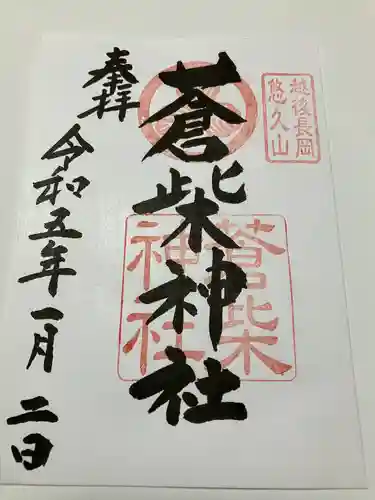 越後長岡
悠久山
奉拝
蒼柴神社
蒼柴
神社
令和五年一月二日